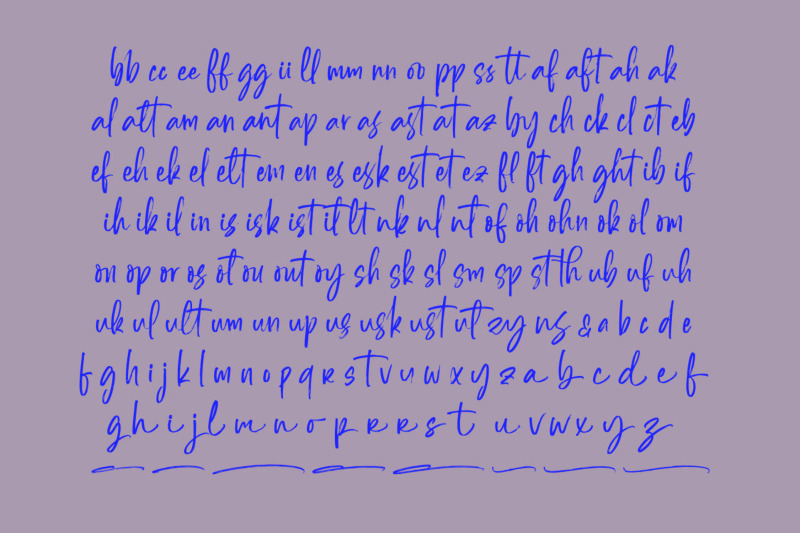 bb cc ee ff gg ii ll mm nn oo pp ss tt af aft ah ak
al alt am an ant ap ar as ast at az by ch ck cl ct eb
ef eh ek el elt em en es esk est et ez fl ft gh ght ib if
ih ik il in is isk ist it lt nk nl nt of oh ohn ok ol om
on op or os ot ou out oy sh sk sl sm sp st th ub uf uh
uk ul ult um un up us usk ust ut zy ns & a b c d e
f g h i j k l m n o p q r s t v u w x y z a b c d e f
g h i j l m n o p r r s t u v w x y z